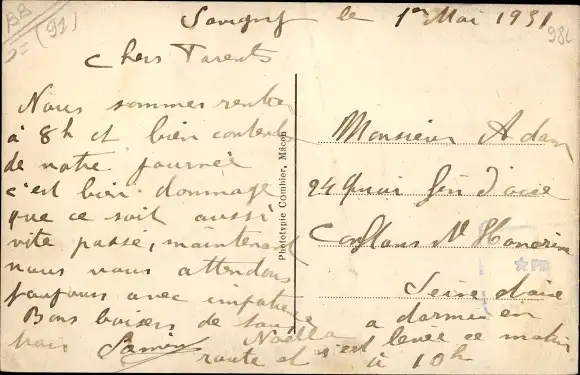 Savigny le 1er Mai 1931
Chers Parents
Nous sommes rentrés
à 8h et bien contents
de notre journée
c'est bien dommage
que ce soit aussi
vite passé, maintenant
nous vous attendons
toujours avec impatience
Bons baisers de tous
Noëlla a dormi en
route et s'est levée ce matin
à 10h
Phototypie Combier, Mâcon
Monsieur Adam
24 Quai d'oise
Conflans Ste Honorine
Seine et Oise
(92)